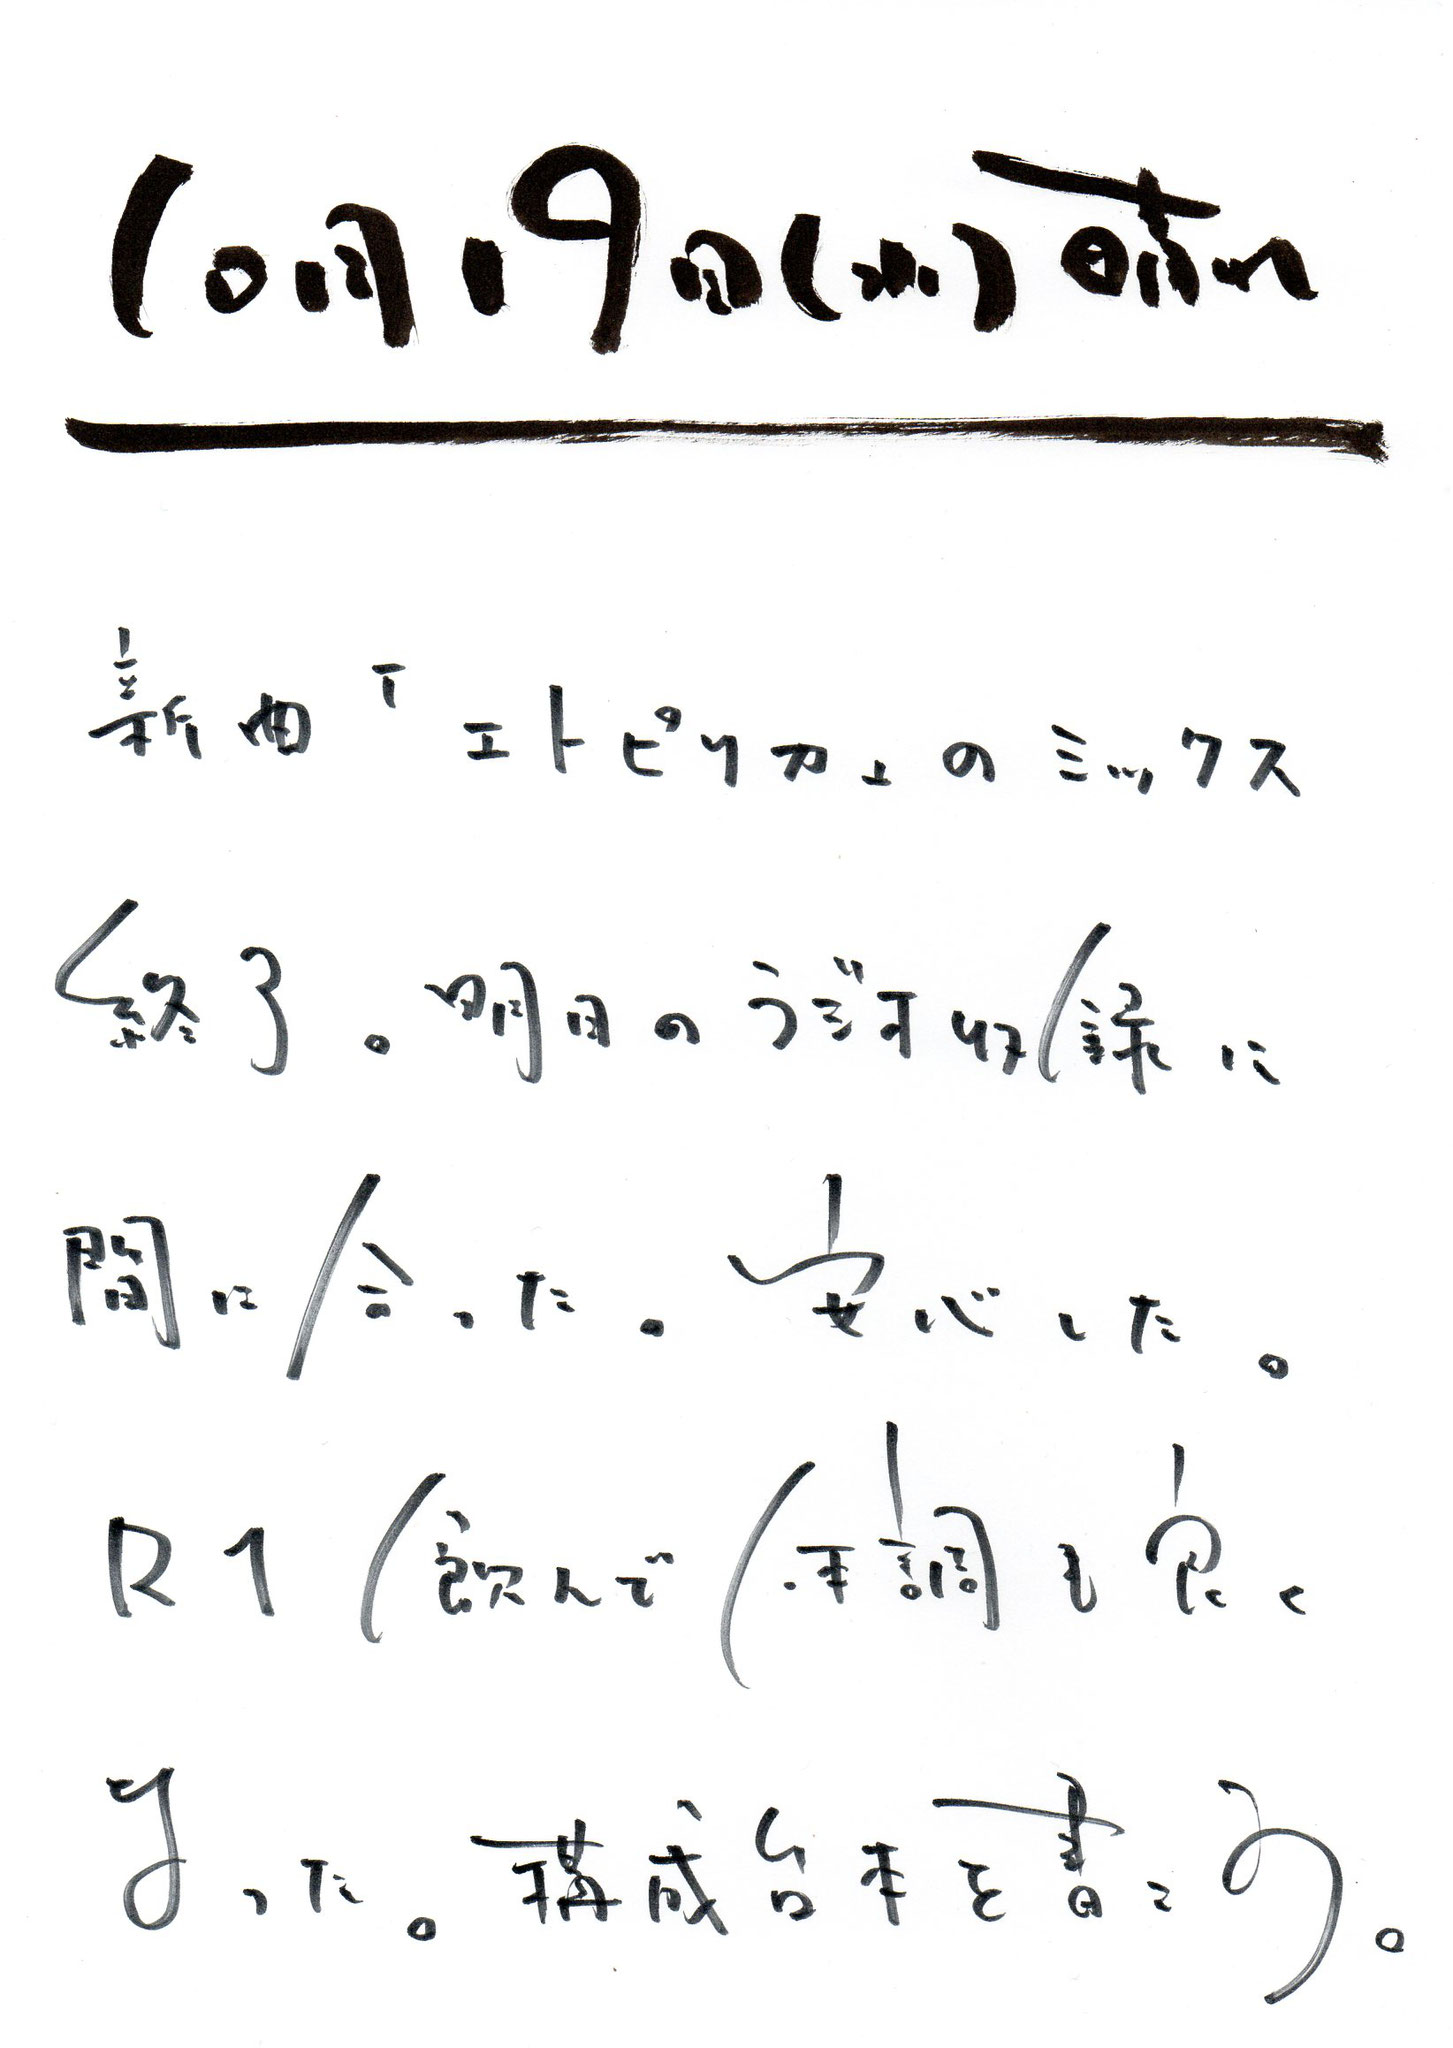 10月19日(水)晴れ
新曲「エトピリカ」のミックス
終了。明日のラジオ収録に
間に合った。安心した。
R1飲んで体調も良く
なった。構成台本を書こう。